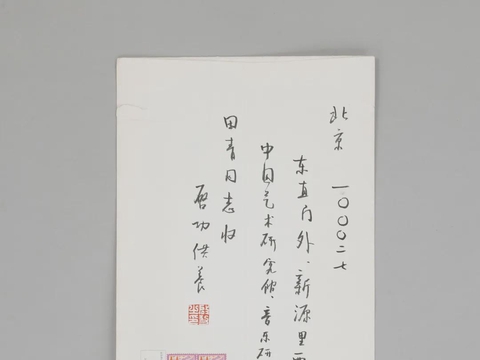 北京 一〇〇〇二七
东直门外·新源里西
中国艺术研究馆、音乐研
田青同志收
启功供养